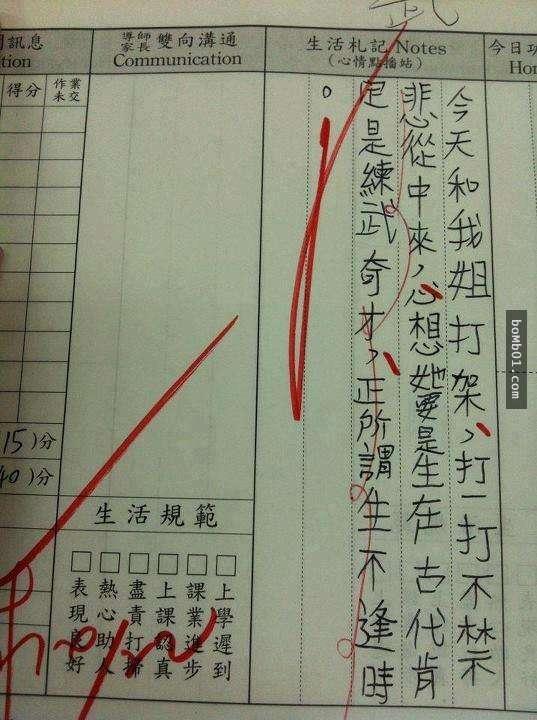 武
今日功
Hom
生活札記 Notes
(心情點播站)
今天和我姐打架,打一打不禁
悲從中來,心想她要是生在古代肯
定是練武奇才,正所謂生不逢時
。
導師 家長 雙向溝通
Communication
訊息
tion
得分
作業未交
15)分
40)分
生活規範
上學遲到
課業進步
上課認真
盡責打掃
熱心助人
表現良好
boMb01.com